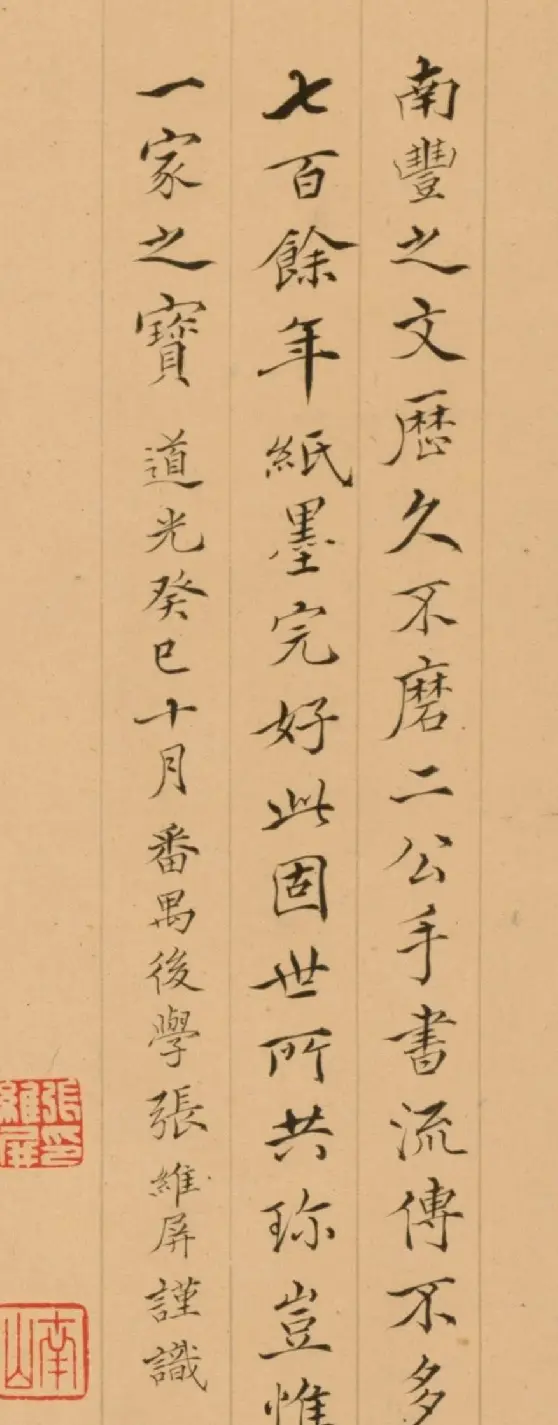 南豐之文歷久不磨二公手書流傳不多
七百餘年紙墨完好此固世所共珎豈惟
一家之寶 道光癸巳十月番禺後學張維屏謹識
張維屏印
南山